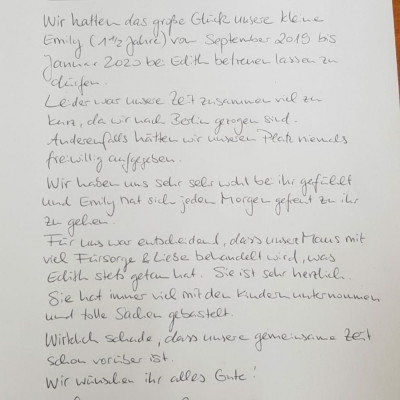 Wir hatten das große Glück unsere kleine
Emily (1 1/2 Jahre) von September 2019 bis
Januar 2020 bei Edith betreuen lassen zu
dürfen.
Leider war unsere Zeit zusammen viel zu
kurz, da wir nach Berlin gezogen sind.
Anderenfalls hätten wir unseren Platz niemals
freiwillig aufgegeben.
Wir haben uns sehr sehr wohl bei ihr gefühlt
und Emily hat sich jeden Morgen gefreut zu ihr
zu gehen
Für uns war entscheidend, dass unser Maus mit
viel Fürsorge & Liebe behandelt wird, was
Edith stets getan hat. Sie ist sehr herzlich.
Sie hat immer viel mit den Kindern unternommen
und tolle Sachen gebastelt.
Wirklich schade, dass unsere gemeinsame Zeit
schon vorüber ist.
Wir wünschen ihr alles Gute!